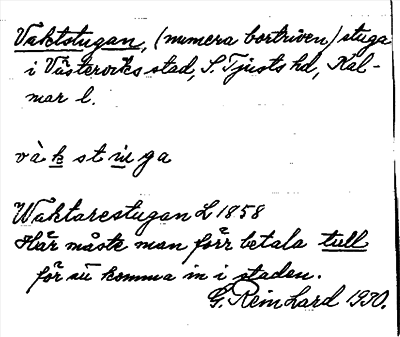 Vaktstugan, (numera bortriven) stuga
i Västerviks stad, S. Tjusts hd, Kal-
mar l.
và k st u ga
Waktarestugan L 1858
Här måste man förr betala tull
för att komma in i staden.
G. Reinhard 1930.